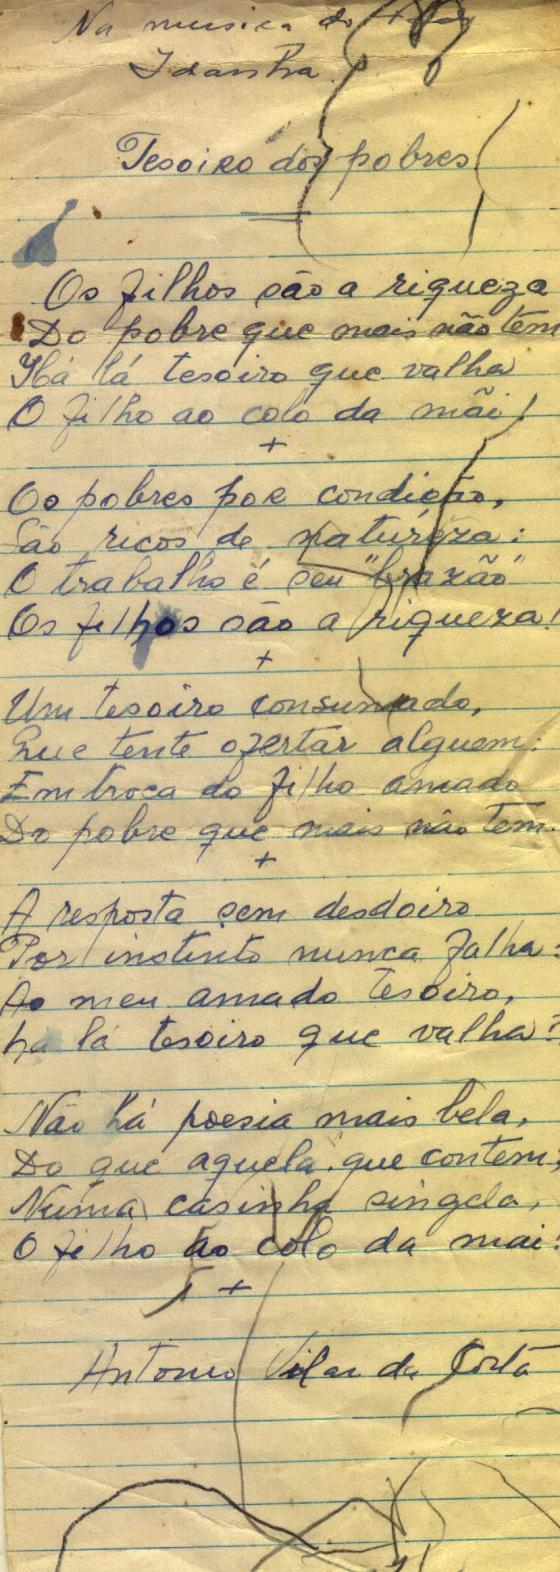 Na musica do
Idanha.
Tesoiro dos pobres
Os filhos são a riqueza
Do pobre que mais não tem
Há lá tesoiro que valha
O filho ao colo da mãi!
+
Os pobres por condição,
São ricos de naturéza:
O trabalho é seu "brazão"
Os filhos são a riqueza!
+
Um tesoiro consumado,
Que tente ofertar alguem:
Em troca do filho amado
Do pobre que mais não tem.
+
A resposta sem desdoiro
Por instinto nunca falha:
Ao meu amado tesoiro,
ha lá tesoiro que valha?
Não há poesia mais bela,
Do que aquela que contem;
Numa casinha singela,
O filho ao colo da mai!
+
Antonio Vilar da Costa